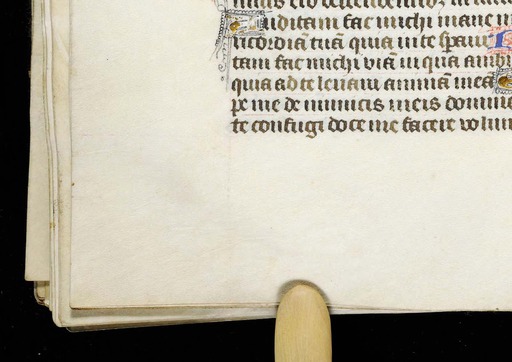 milis ero
Auditam fac michi mane m
ricordiā tuā quia in te speraui
tam fac michi uiā in qua ambu
quia ad te leuaui animā meā
pe me de inimicis meis domine
te confugi doce me facere uolun